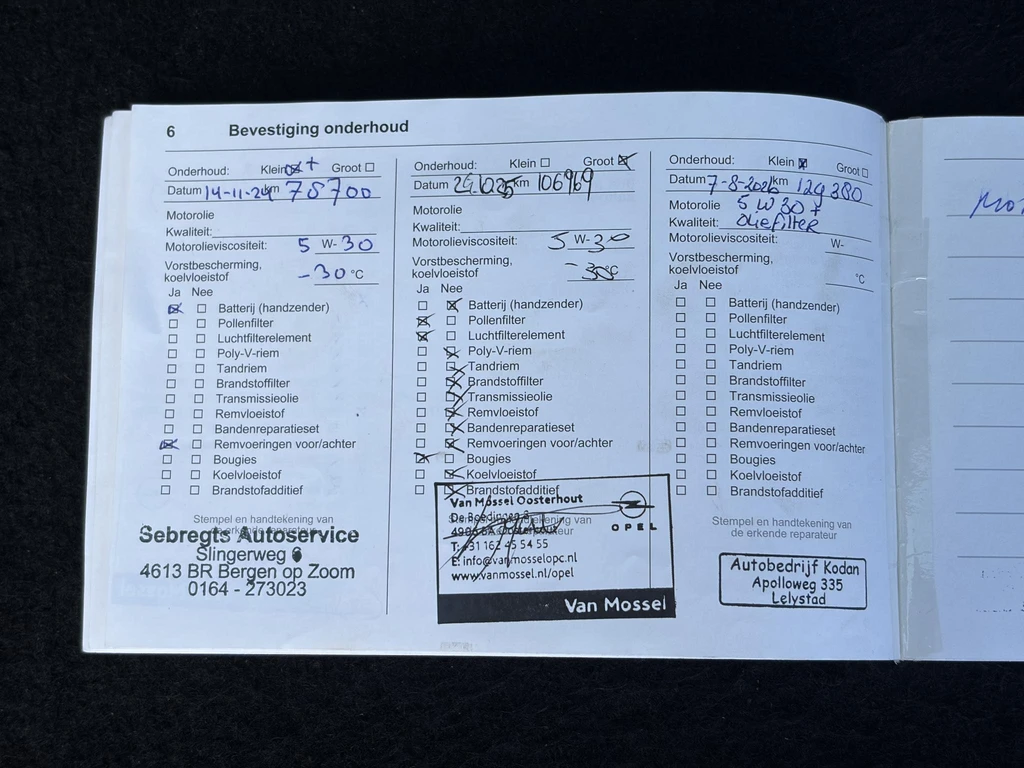 6 Bevestiging onderhoud
Onderhoud: Klein Groot
Datum 14-11-24 km 78700
Motorolie
Kwaliteit:
Motorolieviscositeit: 5 W-30
Vorstbescherming,
koelvloeistof -30 °C
Ja Nee
Batterij (handzender)
Pollenfilter
Luchtfilterelement
Poly-V-riem
Tandriem
Brandstoffilter
Transmissieolie
Remvloeistof
Bandenreparatieset
Remvoeringen voor/achter
Bougies
Koelvloeistof
Brandstofadditief
Stempel en handtekening van
de erkende reparateur
Sebregts Autoservice
Slingerweg 6
4613 BR Bergen op Zoom
0164 - 273023
Onderhoud: Klein Groot
Datum km 106969
Motorolie
Kwaliteit:
Motorolieviscositeit: 5 W-30
Vorstbescherming,
koelvloeistof °C
Ja Nee
Batterij (handzender)
Pollenfilter
Luchtfilterelement
Poly-V-riem
Tandriem
Brandstoffilter
Transmissieolie
Remvloeistof
Bandenreparatieset
Remvoeringen voor/achter
Bougies
Koelvloeistof
Brandstofadditief
Van Mossel Oosterhout
T: +31 162 45 54 55
E: info@vanmosselopc.nl
www.vanmossel.nl/opel
OPEL
Van Mossel
Onderhoud: Klein Groot
Datum 7-8-2026 km 129380
Motorolie 5 W 30 +
Kwaliteit: oliefilter
Motorolieviscositeit: W-
Vorstbescherming,
koelvloeistof °C
Ja Nee
Batterij (handzender)
Pollenfilter
Luchtfilterelement
Poly-V-riem
Tandriem
Brandstoffilter
Transmissieolie
Remvloeistof
Bandenreparatieset
Remvoeringen voor/achter
Bougies
Koelvloeistof
Brandstofadditief
Stempel en handtekening van
de erkende reparateur
Autobedrijf Kodan
Apolloweg 335
Lelystad